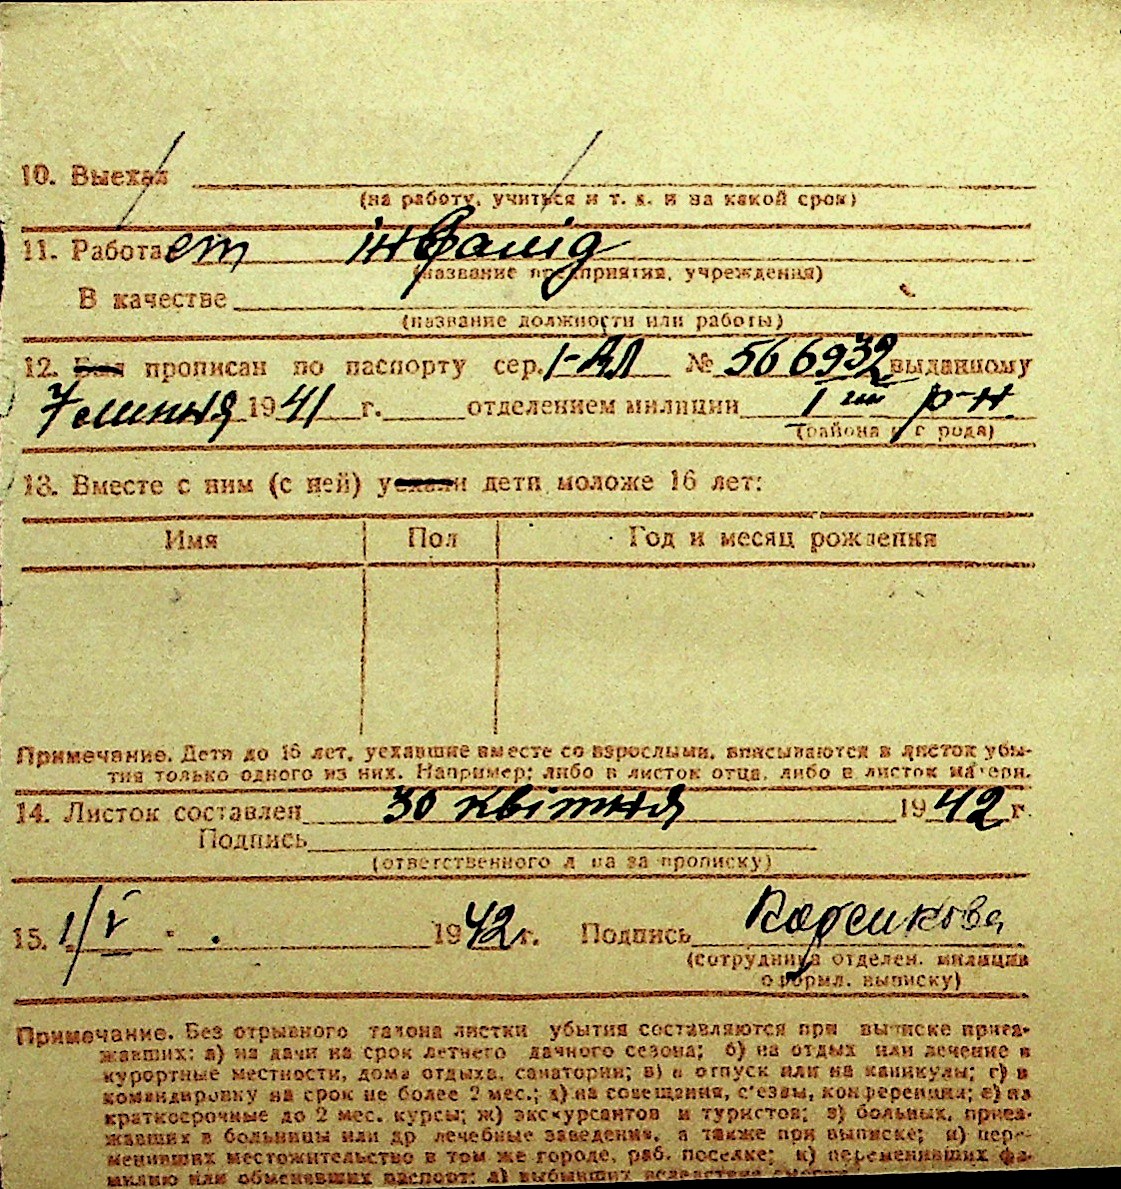 10. Выехал
(на работу, учиться и т. д. и на какой срок)
11. Работает інвалід
(название предприятия, учреждения)
В качестве
(название должности или работы)
12. Был прописан по паспорту сер. I-АЛ № 566932 выданному
7 липня 1941 г. отделением милиции 1 ш р-н
(района и города)
13. Вместе с ним (с ней) уехали дети моложе 16 лет:
Имя Пол Год и месяц рождения
Примечание. Дети до 16 лет, уехавшие вместе со взрослыми, вписываются в листок убы-
тия только одного из них. Например: либо в листок отца, либо в листок матери.
14. Листок составлен 30 квітня 1942 г.
Подпись
(ответственного лица за прописку)
15. 1/V 1942 г. Подпись
(сотрудника отделен. милиции
оформл. выписку)
Примечание. Без отрывного талона листки убытия составляются при выписке приез-
жавших: а) на дачи на срок летнего дачного сезона; б) на отдых или лечение в
курортные местности, дома отдыха, санатории; в) в отпуск или на каникулы; г) в
командировку на срок не более 2 мес.; д) на совещания, с'езды, конференции; е) на
краткосрочные до 2 мес. курсы; ж) экскурсантов и туристов; з) больных, приез-
жавших в больницы или др лечебные заведения, а также при выписке; и) пере-
менивших местожительство в том же городе, раб. поселке; к) переменивших фа-
милию или обменявших паспорт; л) выбывших вследствие смерти